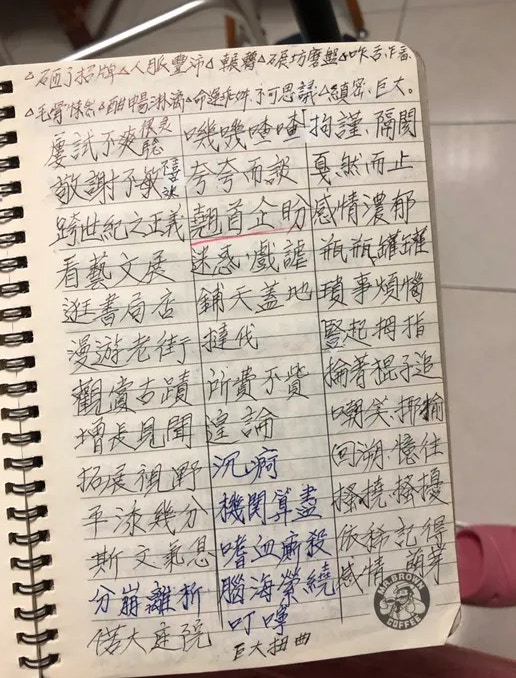 △砸了招牌△人脈豐沛△賴聲△碾坊磨盤△咋舌、乍富、
△毛骨悚然△酣暢淋漓△命運乖舛、不可思議△縝密、巨大。
屢試不爽 很靈驗
敬謝不敏
跨世紀之正義
看藝文展
逛書局店
漫遊老街
觀償古蹟
增長見聞
拓展視野
平添幾分
斯文氣息
分崩離析
偌大庭院
嘰嘰喳喳
夸夸而談
翹首企盼
迷惑、戲謔
鋪天蓋地
撻伐
所費不貲
遑論
沉疴
機関算盡
嗜血廝殺
腦海縈繞
叮嚀
巨大扭曲
拘謹、隔閡
戛然而止
感情濃郁
瓶瓶罐罐
瑣事煩惱
豎起拇指
掄著棍子追
嘲笑、揶揄
回溯、憶往
搔撓、搔擾
依稀記得
感情 萌芽
MR.BROWN
COFFEE